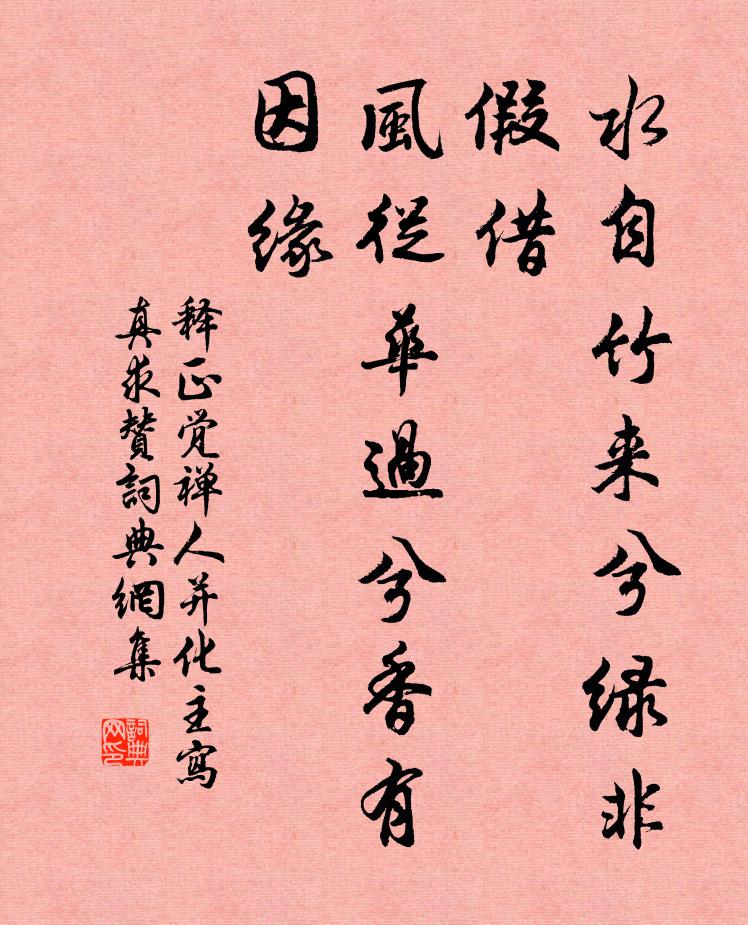 水自竹来兮绿非
假借
風從華過兮香有
因缘
释正觉禅人并化主寫
真求贊詞典網集
詞典
网印